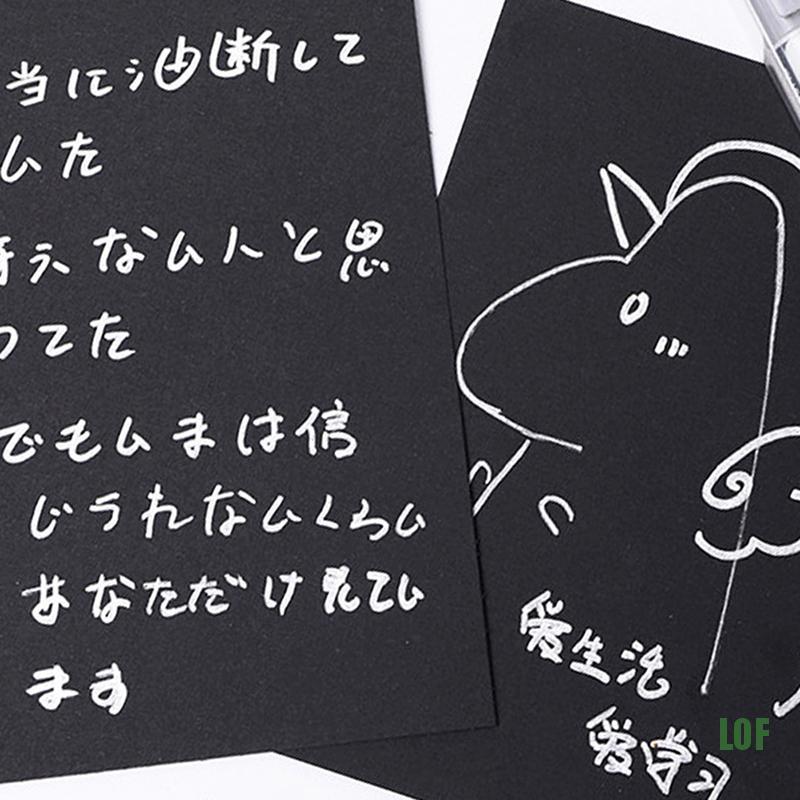 当に油断して
いた
考えないんと思
ってた
でもいまは信
じられないくらい
あなただけ見てい
ます
爱生活
爱学习
LOF